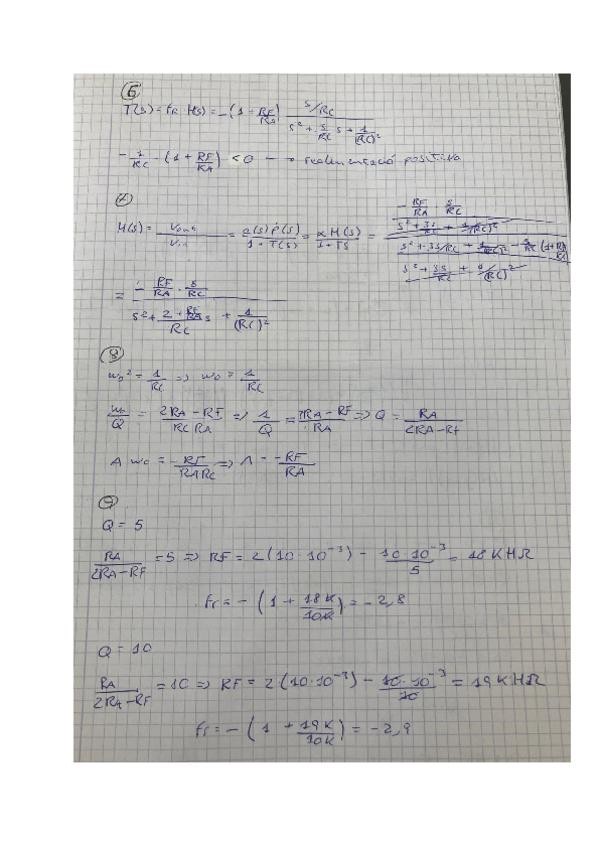 6
T(s) = fR · H(s) = -(1 + RF/RA) · (s/RC) / (s² + 3/RC s + 1/(RC)²)
- 1/RC · (1 + RF/RA) < 0 → realimentació positiva
7
H(s) = Vout/Vin = a(s) p(s) / 1 + T(s) = α H(s) / 1 + TS =
= (- RF/RA · s/RC) / (s² + (2 + RF/RA)/RC s + 1/(RC)²)
8
ω0² = 1/RC => ω0 = 1/RC
ω0/Q = 2RA - RF / RC RA => 1/Q = 2RA - RF / RA => Q = RA / 2RA - RF
A ω0 = - RF / RA RC => A = - RF / RA
9
Q = 5
RA / 2RA - RF = 5 => RF = 2(10·10⁻³) - 10·10⁻³ / 5 = 18 K
fr = - (1 + 18K/10K) = -2,8
Q = 10
RA / 2RA - RF = 10 => RF = 2(10·10⁻³) - 10·10⁻³ / 10 = 19 K
fr = - (1 + 19K/10K) = -2,9